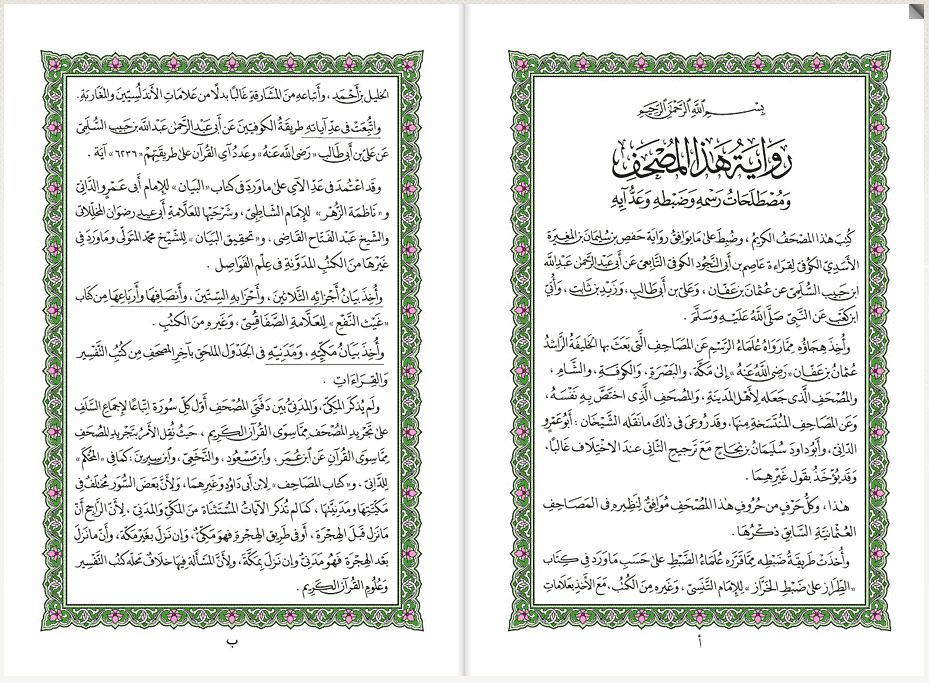 بِسْمِ اللَّهِ الرَّحْمَٰنِ الرَّحِيمِ
رِوَايَةُ هَٰذَا المُصْحَفِ
وَمُصْطَلَحَاتُ رَسْمِهِ وَضَبْطِهِ وَعَدِّ آيِهِ
كُتِبَ هٰذا المصْحَفُ الكريمُ ، وضُبِطَ علىٰ مَا يوَافِقُ رِوَايَةَ حَفصِ بنِ سُلَيمَانَ بنِ المغِيرَةِ
الأَسَدِيّ الكُوفيّ لِقِرَاءَةِ عَاصِمِ بنِ أَبي النَّجُودِ الكُوفيّ التَّابِعيّ عَن أَبي عَبدِالرَّحْمٰن عَبدِاللهِ
ابنِ حَبِيبٍ السُّلَمِيّ عن عُثمَانَ بنِ عَفّان ، وَعَليّ بنِ أَبي طَالِبٍ ، وَزَيدِ بنِ ثَابِتٍ ، وَأُبَيّ
ابنِ كَعْبٍ عَنِ النَّبيّ صَلَّى اللهُ عَلَيْهِ وَسَلَّمَ .
وأُخِذَ هِجَاؤُه مِمَّا رَوَاهُ عُلَمَاءُ الرَّسْمِ عَنِ المصَاحِفِ الَّتي بَعَثَ بهَا الخَليفَةُ الرَّاشدُ
عُثْمَانُ بنُ عَفّان «رَضِيَ اللهُ عَنهُ» إلىٰ مَكَّةَ، وَالبَصْرَةِ ، وَالكُوفَةِ ، والشَّامِ ،
والمُصْحَفِ الَّذي جَعَلَه لِأَهْلِ المدينَةِ ، وَالمُصْحَفِ الَّذي اختَصَّ بهِ نَفْسَهُ ،
وَعَنِ المصَاحِفِ المُنتَسَخَةِ مِنهَا، وَقد رُوعيَ في ذٰلِكَ مَا نقَلَه الشَّيْخَانِ : أَبُو عَمْرٍو
الدَّانيّ، وأَبُو دَاودَ سُلَيْمَانُ بنُ نجَاحٍ مَعَ تَرْجِيحِ الثَّاني عِندَ الاختِلافِ غَالِبًا،
وَقَد يُؤخَذُ بقَولِ غَيْرِهِمَا .
هٰذا ، وكلُّ حَرْفٍ مِن حُرُوفِ هٰذَا المصْحَفِ مُوَافِقٌ لِنَظِيرِهِ في المَصَاحِفِ
العُثْمَانيَّةِ السَّابِقِ ذِكْرُهَا .
وأُخِذَتْ طَرِيقَةُ ضَبْطِهِ مِمَّا قَرَّرَه عُلَمَاءُ الضَّبْطِ علىٰ حَسَبِ مَا وَرَدَ في كِتَابِ
«الطِّرَازِ علىٰ ضَبْطِ الخَرَّازِ» لِلإِمَامِ التَّنَسِيّ ، وَغَيرِهِ مِنَ الكُتُبِ، مَعَ الأَخْذِ بعَلَامَاتِ
أ
الخليلِ بنِ أَحْمَدَ ، وأَتبَاعِه مِنَ المشَارِقةِ غَالبًا بدلًا من عَلَامَاتِ الأَندَلُسِيّينَ وَالمغَارِبَةِ .
واتُّبِعَتْ في عَدِّ آياتهِ طَرِيقَةُ الكُوفيّينَ عَن أَبي عَبدِ الرَّحمٰنِ عَبدِاللهِ بنِ حَبِيبٍ السُّلَمِيّ
عَن عَليّ بنِ أَبي طَالِبٍ «رَضِيَ اللهُ عَنهُ» وَعَدَدُ آيِ القُرآنِ علىٰ طَرِيقَتِهِمْ «٦٢٣٦» آيَة .
وقَد اعتُمِدَ في عَدِّ الآيِ علىٰ مَا وَرَدَ في كتاب «البَيَان» لِلإِمامِ أَبي عَمْرٍو الدَّانيّ
و«نَاظِمَةِ الزُّهْر» لِلإِمَامِ الشَّاطِبيّ ، وشَرْحَيْهَا لِلعَلَّامَةِ أَبي عِيدٍ رِضوَان المخَلِّلاتي
والشَّيخِ عَبْدِ الفَتَّاحِ القَاضِي ، و«تَحقِيقِ البَيَان» لِلشَّيْخِ مُحَمَّدٍ المتَوَلّي وَمَا وَرَدَ في
غَيْرِهَا مِنَ الكُتُبِ المدَوَّنَةِ في عِلْمِ الفَوَاصِلِ .
وأُخِذَ بَيَانُ أَجْزَائِهِ الثَّلَاثِينَ ، وَأَحْزَابِهِ السِّتِّينَ ، وأَنصَافِهَا وأَربَاعِهَا مِن كتابِ
«غَيْث النَّفْعِ» لِلعَلَّامَةِ الصَّفَاقُسِيّ ، وَغَيرِه مِنَ الكتُبِ .
وأُخِذَ بَيَانُ مَكِّيِّهِ ، وَمَدَنِيِّهِ في الجَدْوَلِ الملحَقِ بآخِرِ المصحَفِ مِن كتُبِ التَّفْسِيرِ
وَالقِرَاءَاتِ .
ولَم يُذكَرِ المكِّيّ، وَالمدَنيّ بَينَ دَفَّتيِ المُصْحَفِ أَوَّلَ كلّ سُورَةٍ اتّبَاعًا لإجمَاعِ السَّلَفِ
علىٰ تَجْرِيدِ المُصْحَفِ مِمَّا سِوَى القُرآنِ الكَرِيمِ ، حَيثُ نُقِلَ الأَمرُ بتَجْرِيدِ المُصْحَفِ
مِمَّا سِوَى القُرآنِ عَن ابْنِ عُمَرَ ، وابْنِ مَسْعُودٍ ، وَالنَّخَعِيّ ، وَابْنِ سِيرِينَ :كمَا في «المُحْكَم»
لِلدَّانيّ ، و«كتاب المصَاحِف» لِابنِ أَبي دَاوُدَ وغَيرِهِمَا، وَلأَنَّ بَعْضَ السُّوَرِ مُختَلَفٌ في
مَكِّيَّتِهَا وَمَدَنِيَّتِهَا ، كمَا لَم تُذكَرِ الآيَاتُ المُسْتَثنَاة مِنَ المَكِّيّ وَالمدَنيّ ، لِأَنَّ الرَّاجِحَ أَنَّ
مَا نَزَلَ قَبْلَ الهِجْرَةِ ، أَو في طَرِيقِ الهِجْرَةِ فَهوَ مَكِّيّ، وإن نَزَلَ بغَيْرِ مَكَّةَ، وأَنَّ مَا نَزَلَ
بَعْدَ الهِجْرَةِ فَهُوَ مَدَنيّ وَإن نَزَلَ بِمَكَّةَ، ولِأَنَّ المَسْأَلَةَ فِيهَا خِلَافٌ مَحلّه كتُبُ التَّفْسِيرِ
وَعُلُومِ القُرآنِ الكَرِيمِ .
ب